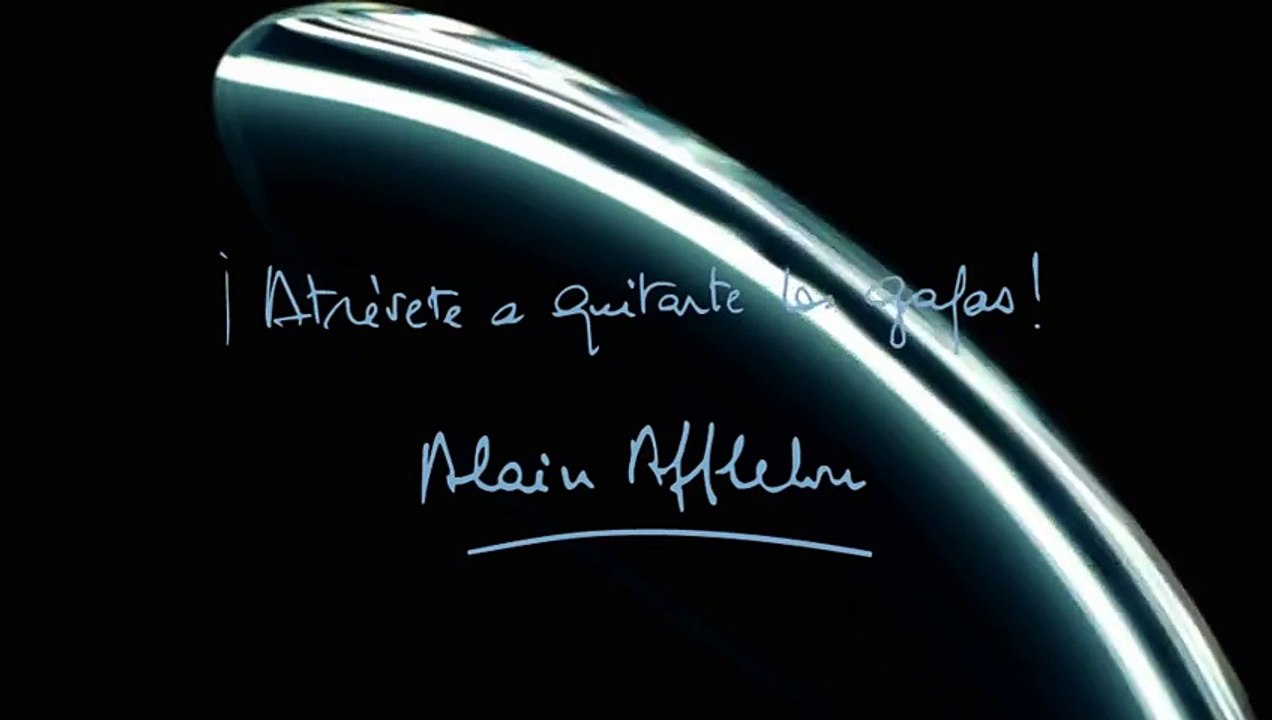 ¡Atrévete a quitarte las gafas!
Alain Afflelou